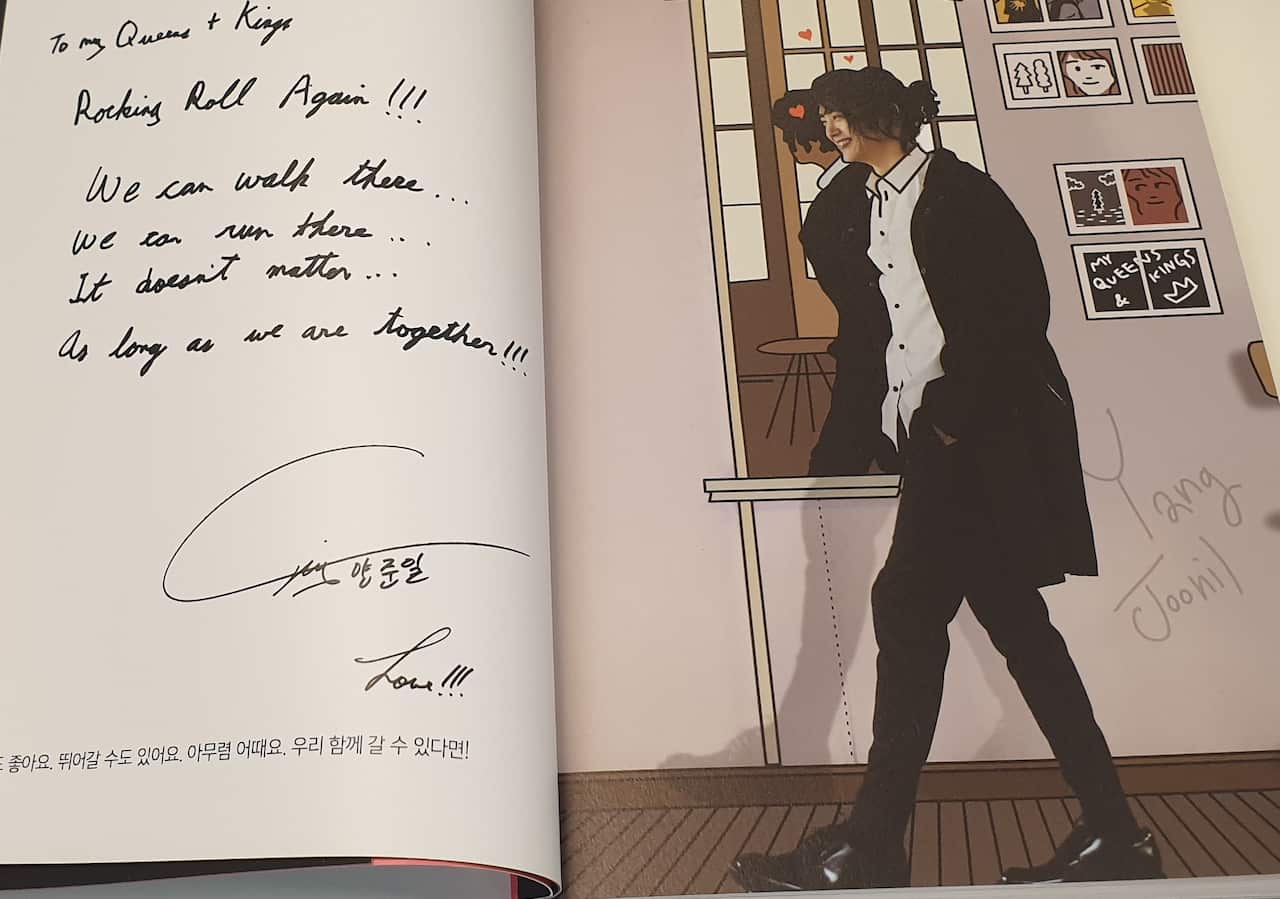 To my Queens + Kings
Rocking Roll Again!!!
We can walk there...
We can run there...
It doesn't matter...
As long as we are together!!!
양준일
Love!!!
좋아요. 뛰어갈 수도 있어요. 아무렴 어때요. 우리 함께 갈 수 있다면!
MY QUEENS
& KINGS
Yang
Joonil